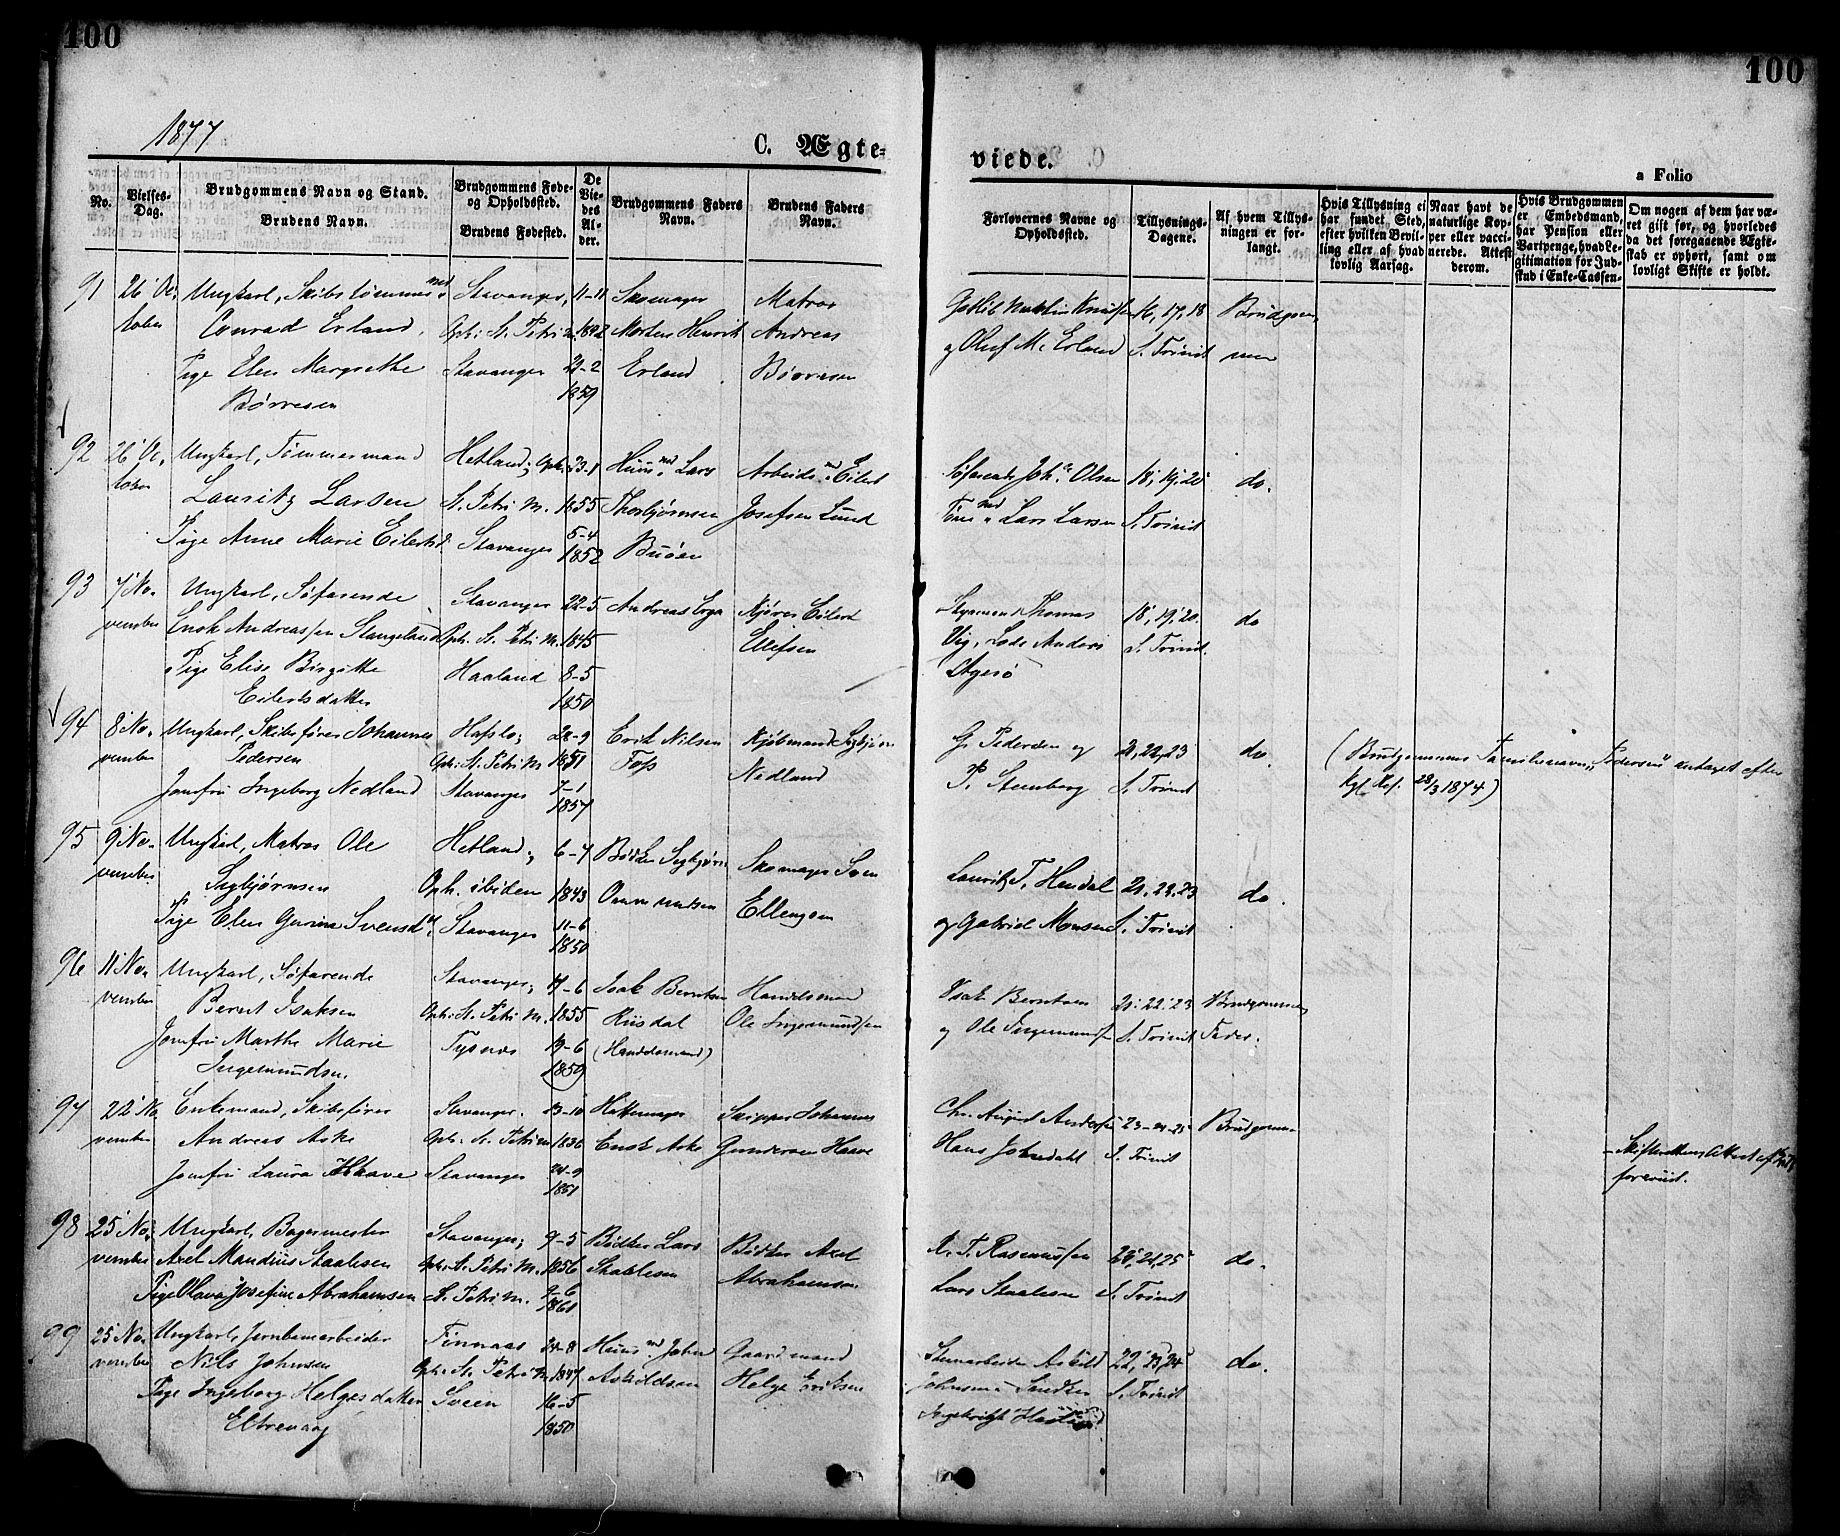 100
100
1877
C. Ægte-
viede.
a Folio
No.
Vielses-
Dag.
Brudgommens Navn og Stand.
Brudens Navn.
Brudgommens Føde-
og Opholdsted.
Brudens Fødested.
De
Vie-
des
Al-
der.
Brudgommens Faders
Navn.
Brudens Faders
Navn.
Forlovernes Navne og
Opholdsted.
Tillysnings-
Dagene.
Af hvem Tillys-
ningen er for-
langt.
Hvis Tillysning ei
har fundet Sted,
efter hvilken Bevil-
ling eller af hvad
lovlig Aarsag.
Naar havt de
naturlige Kop-
per eller vacci-
nerede. Attest
derom.
Hvis Brudgommen
er Embedsmand,
har Pension eller
Vartpenge, hvad Le-
gitimation for Ind-
skud i Enke-Cassen.
Om nogen af dem har væ-
ret gift før, og hvorledes
da det foregaaende Ægte-
skab er ophørt, samt om
lovligt Skifte er holdt.
91
26' Oc-
tober
Ungkarl, Skibstømmermd
Conrad Erland,
Pige Elen Margrethe
Børresen
Stavanger,
Oph: St. Petri M.
Stavanger
11-11
1842
21-2
1859
Skomager
Morten Henrik
Erland
Matros
Andreas
Børresen
og Oluf M. Erland
16, 17, 18
S. Trinit
Brudgom-
men
92
26' Oc-
tober
Ungkarl, Tømmermand
Lauritz Larsen
Pige Anne Marie Eilertsd.
Hetland; Oph.
St. Petri M.
Stavanger
23-1
1855
5-4
1852
Huusmd Lars
Thorbjørnsen
Buøen
Arbeidsmd Eilert
Josefsen Lund
Søfarende Johs Olsen
Tømmd Lars Larsen
18, 19, 20
S. Trinit
do.
93
7' No-
vember
Ungkarl, Søfarende
Enok Andreassen Stangeland
Pige Elise Birgitte
Eilertsdatter
Stavanger
Oph: St. Petri M.
Haaland
22-5
1845
8-5
1850
Andreas Erga
Kjører Eilert
Ellefsen
Styrmand Thomas
Vig, Lods Anders
18, 19, 20.
S. Trinit.
do
94
8' No-
vember
Ungkarl, Skibsfører Johannes
Pedersen
Jomfru Ingeborg Nedland
Hafslo;
Oph: St. Petri M
Stavanger
22-9
1851
7-1
1857
Erik Nilsen
Kjøbmand Sigbjørn
Nedland
G. Pedersen og
P. Stenberg
21, 22, 23
S. Trinit
do.
(Brudgommens Familienavn „Pedersen" antaget efter
Kgl. Res. 28/3 1874)
95
9' No-
vember
Ungkarl, Matros Ole
Sigbjørnsen
Pige Elen Gurine Svensdr.
Hetland;
Oph. ibiden
Stavanger
6-4
1843
11-6
1850
Bødker Sigbjørn
Ommundsen
Skomager Sven
Ellingsen
Lauritz T. Hendal
og Gabriel Monsen
21, 22, 23
S. Trinit
do.
96
11' No-
vember
Ungkarl, Søfarende
Bernt Isaksen
Jomfru Marthe Marie
Ingemundsen.
Stavanger;
Oph: St. Petri M.
Tysnæs
17-6
1855
19-6
1859
Isak Berntsen
Riisdal
(Handelsmand)
Handelsmand
Ole Ingemundsen
Isak Berntsen
og Ole Ingemundsen
21, 22, 23
S. Trinit
Brudgommens
Fader.
97
22' No-
vember
Enkemand, Skibsfører
Andreas Aske
Jomfru Laura Haave
Stavanger.
Oph: St. Petri M
Stavanger
13-10
1836
24-9
1851
Hattemager
Enok Aske
Skipper Johannes
Gundersen Haave
Chr. August Andersen
Hans Johndahl
23-24-25
S. Trinit
Brudgommen
forevist.
98
25' No-
vember
Ungkarl, Bagermester
Axel Mandius Staalesen
Pige Olava Josefine Abrahamsen
Stavanger;
Oph: St. Petri M.
St. Petri M.
9-5
1856
2-6
1861
Bødker Lars
Staalesen
Bødker Axel
Abrahamsen
R. T. Rasmussen
Lars Staalesen
S. Trinit
do.
99
25' No-
vember
Ungkarl, Jernbanarbeider
Nils Johnsen
Pige Ingeborg Helgesdatter
Eltrevaag
Finnaas
Oph: St. Petri M
Sveen
24-8
1847
16-5
1850
Huusmd John
Askildsen
Gaardmand
Helge Eriksen
Stenarbeider Askild
Johnsen
22, 23, 24
S. Trinit
do.